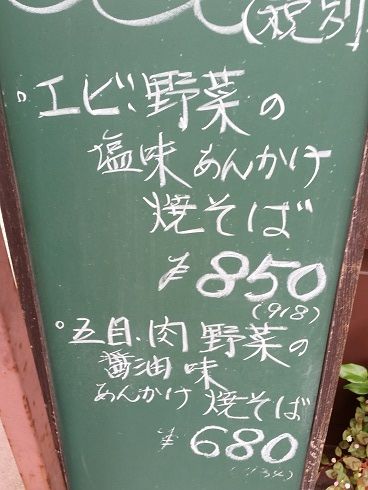 (税別
。エビ、野菜の
塩味あんかけ
焼そば
¥850
(918)
。五目、肉野菜の
醤油味
あんかけ焼そば
¥680